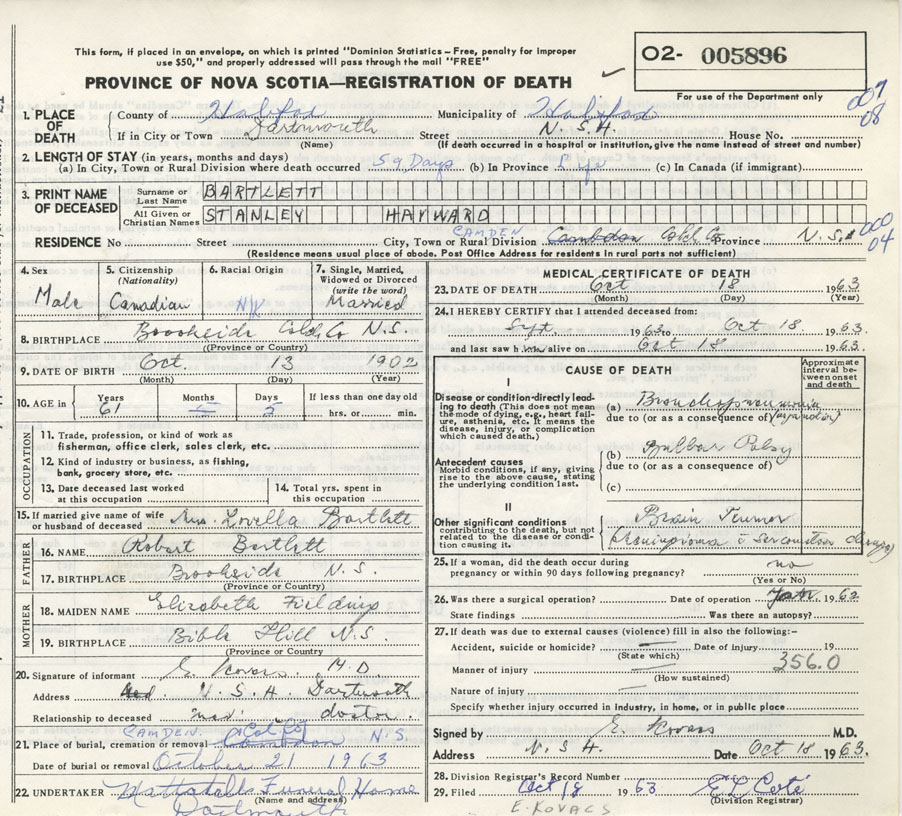 This form, if placed in an envelope, on which is printed "Dominion Statistics – Free, penalty for improper
use $50," and properly addressed will pass through the mail "FREE"
PROVINCE OF NOVA SCOTIA—REGISTRATION OF DEATH
O2- 005896
For use of the Department only
007
08
1. PLACE OF DEATH
County of Halifax Municipality of Halifax
If in City or Town Dartmouth Street N.S.H. House No.
(Name) (If death occurred in a hospital or institution, give the name instead of street and number)
2. LENGTH OF STAY (in years, months and days)
(a) In City, Town or Rural Division where death occurred 59 Days (b) In Province Life (c) In Canada (if immigrant)
3. PRINT NAME OF DECEASED
Surname or Last Name BARTLETT
All Given or Christian Names STANLEY HAYWARD
CAMDEN
RESIDENCE No Street City, Town or Rural Division Cambdon Colch Co Province N.S.
000
04
(Residence means usual place of abode. Post Office Address for residents in rural parts not sufficient)
4. Sex Male
5. Citizenship (Nationality) Canadian
6. Racial Origin N/K
7. Single, Married, Widowed or Divorced (write the word) Married
8. BIRTHPLACE Brookside Colch. Co N.S.
(Province or Country)
9. DATE OF BIRTH Oct. 13 1902
(Month) (Day) (Year)
10. AGE in Years 61 Months – Days 5 If less than one day old hrs. or min.
OCCUPATION
11. Trade, profession, or kind of work as fisherman, office clerk, sales clerk, etc.
12. Kind of industry or business, as fishing, bank, grocery store, etc.
13. Date deceased last worked at this occupation
14. Total yrs. spent in this occupation
15. If married give name of wife or husband of deceased Mrs. Lovella Bartlett
FATHER
16. NAME Robert Bartlett
17. BIRTHPLACE Brookside N.S.
(Province or Country)
MOTHER
18. MAIDEN NAME Elizabeth Fielding
19. BIRTHPLACE Bible Hill N.S.
(Province or Country)
20. Signature of informant E. Kovacs M.D
Address N.S.H. Dartmouth
Relationship to deceased doctor.
CAMDEN. Col Co
21. Place of burial, cremation or removal Cambdon N.S.
Date of burial or removal October 21 1963
22. UNDERTAKER Mattatalls Funeral Home
(Name and address)
Dartmouth
MEDICAL CERTIFICATE OF DEATH
23. DATE OF DEATH Oct 18 1963
(Month) (Day) (Year)
24. I HEREBY CERTIFY that I attended deceased from:
Sept. 1963 to Oct 18 1963.
and last saw him alive on Oct 18 1963.
CAUSE OF DEATH
Approximate interval between onset and death
I
Disease or condition directly leading to death (This does not mean the mode of dying, e.g., heart failure, asthenia, etc. It means the disease, injury, or complication which caused death.)
(a) Bronchopneumonia
due to (or as a consequence of)
Antecedent causes
Morbid conditions, if any, giving rise to the above cause, stating the underlying condition last.
(b) Bulbar Palsy
due to (or as a consequence of)
(c)
II
Other significant conditions
contributing to the death, but not related to the disease or condition causing it.
Brain Tumor
25. If a woman, did the death occur during pregnancy or within 90 days following pregnancy? no
(Yes or No)
26. Was there a surgical operation? Date of operation 1962
State findings Was there an autopsy?
27. If death was due to external causes (violence) fill in also the following:–
Accident, suicide or homicide? Date of injury 19
(State which)
356.0
Manner of injury
(How sustained)
Nature of injury
Specify whether injury occurred in industry, in home, or in public place
Signed by E. Kovacs M.D.
Address N.S.H. Date Oct 18 1963.
28. Division Registrar's Record Number
29. Filed Oct 18 1963 E L Coté
(Division Registrar)
E. KOVACS